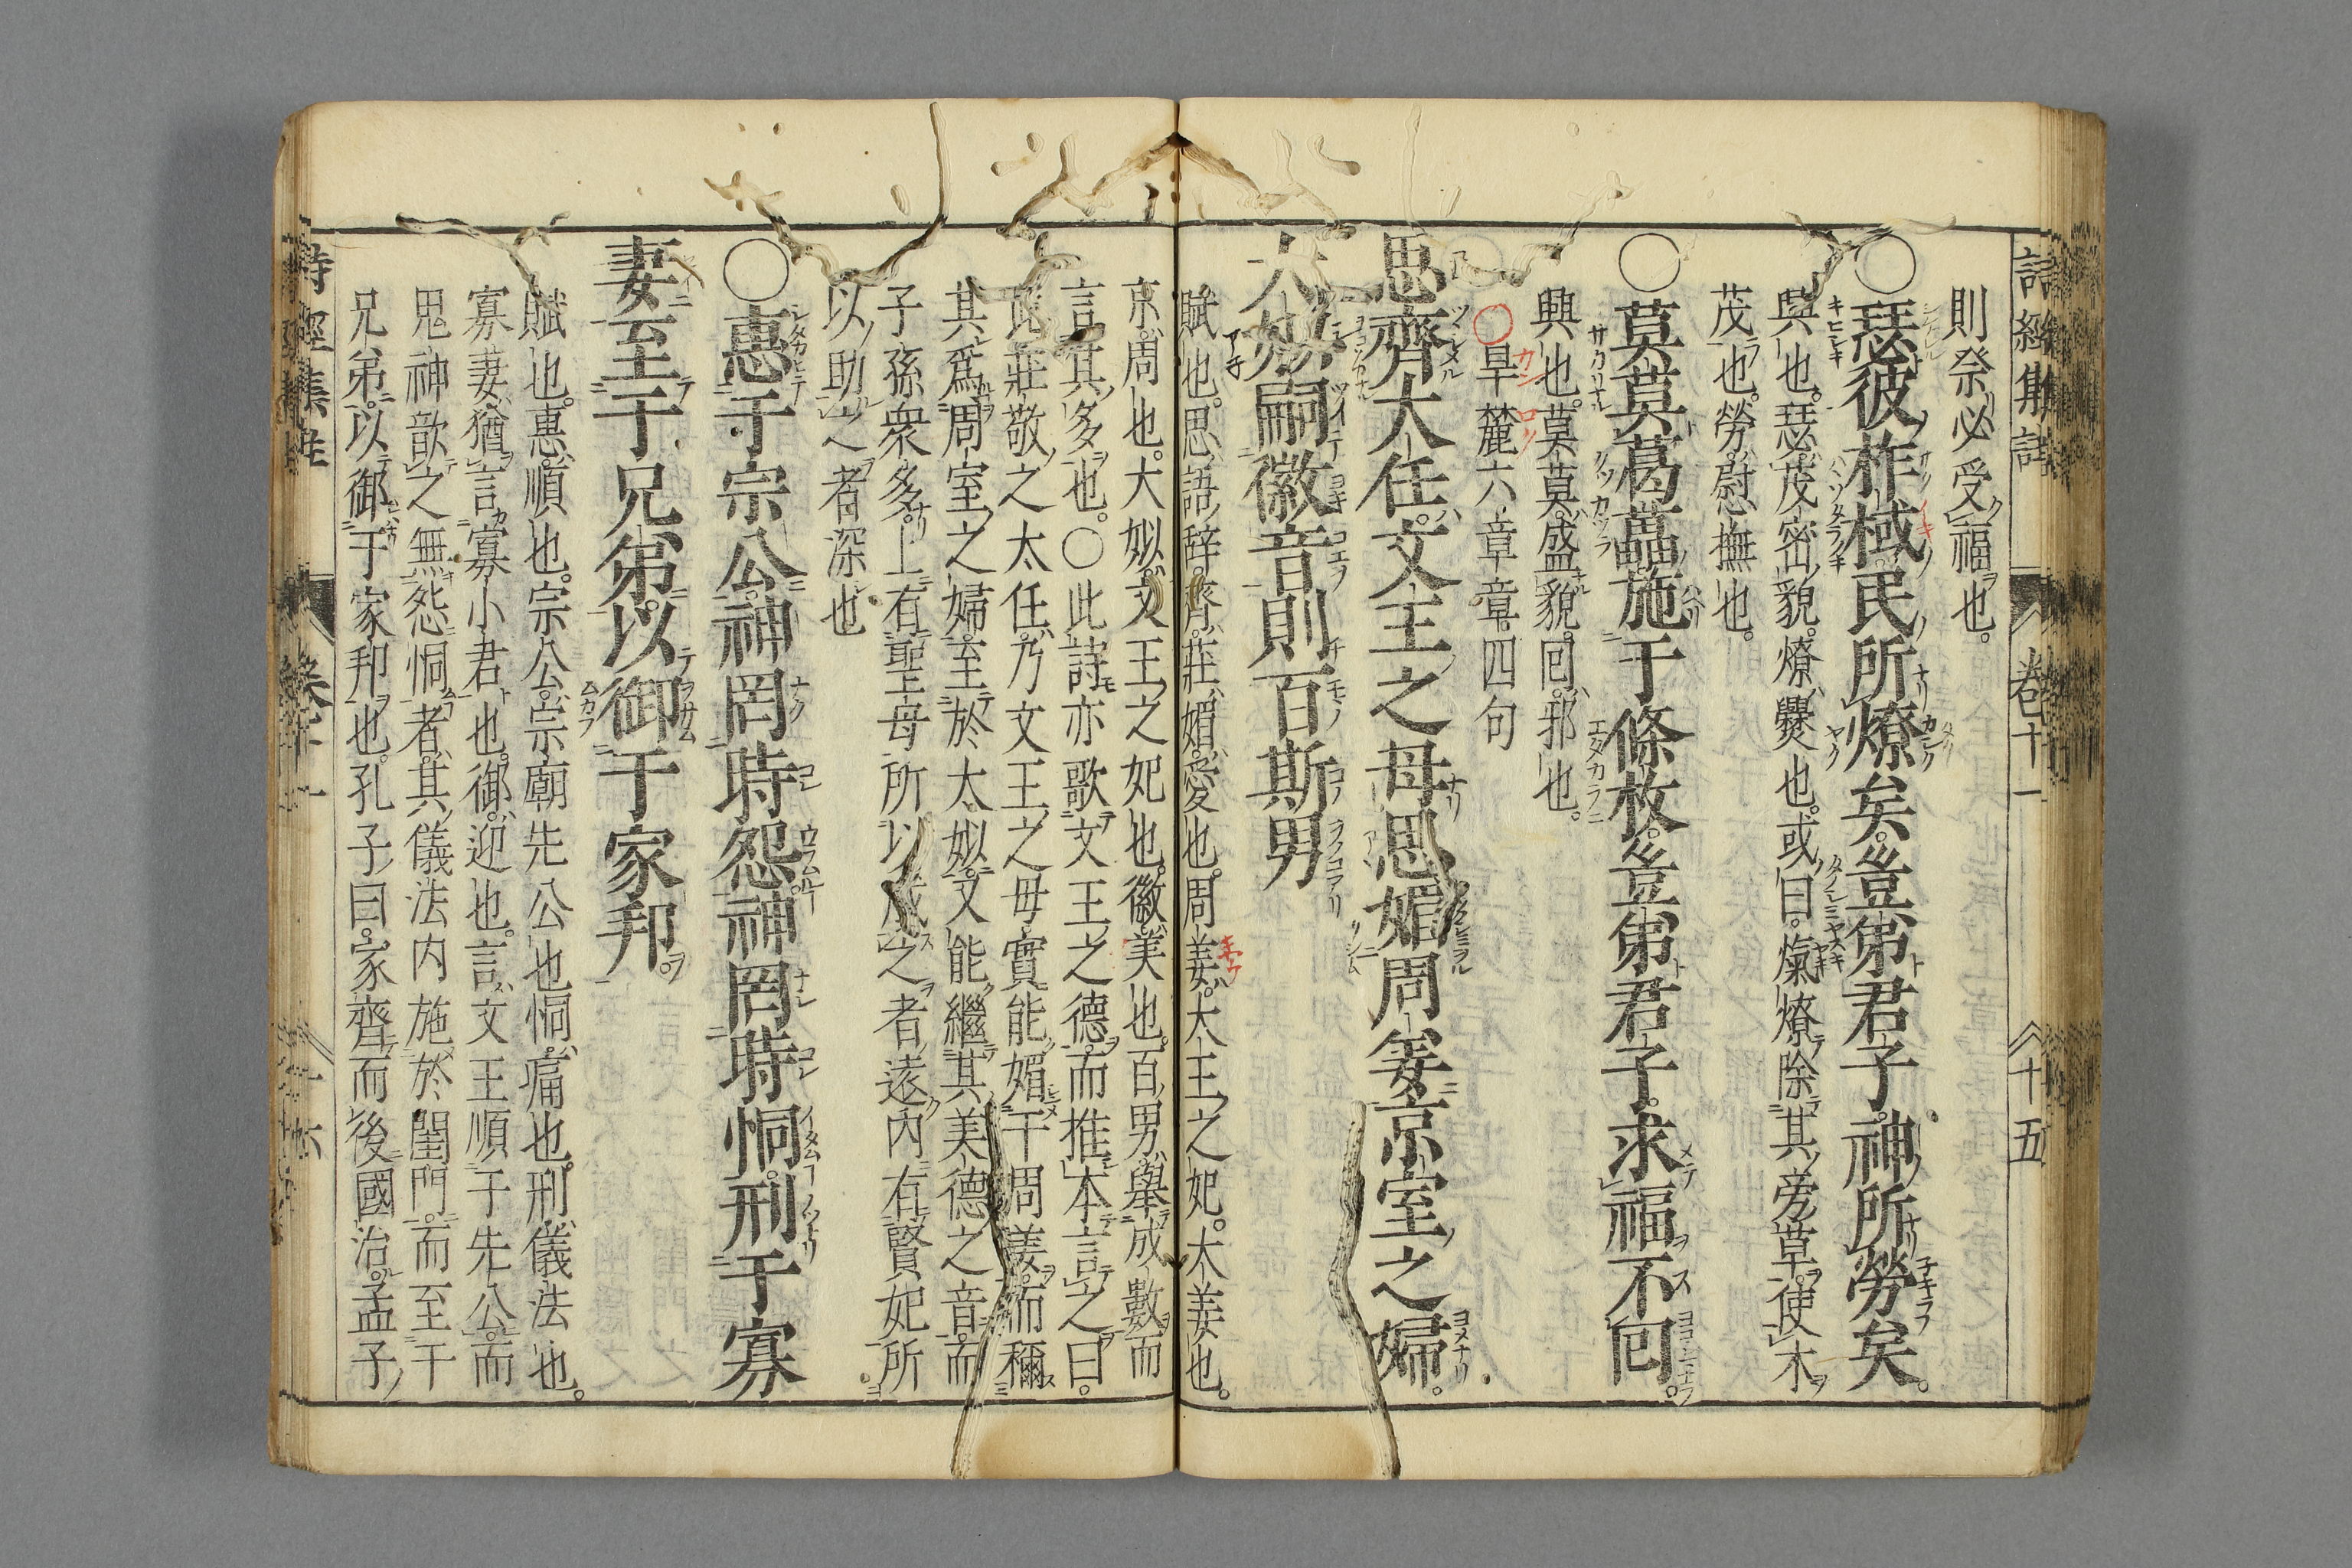 詩經集註 卷十一 十五
則祭必受福也。
○瑟彼柞棫民所燎矣。豈弟君子。神所勞矣。
興也。瑟茂密貌。燎爨也。或曰。熂燎除其旁草。使木
茂也。勞慰撫也。
○莫莫葛藟施于條枚。豈弟君子。求福不回。
興也。莫莫盛貌。回邪也。
○旱麓六章章四句
思齊大任。文王之母思媚周姜京室之婦。
大姒嗣徽音則百斯男
賦也。思語辭。齊莊。媚愛也。周姜。大王之妃。大姜也。
京周也。大姒文王之妃也。徽美也。百男舉成數而
言其多也。○此詩亦歌文王之德。而推本言之曰。
此莊敬之太任。乃文王之母。實能媚于周姜。而稱
其爲周室之婦。至於太姒。又能繼其美德之音。而
子孫衆多。上有聖母所以成之者遠。內有賢妃所
以助之者深也
○惠于宗公。神罔時怨。神罔時恫。刑于寡
妻至于兄弟。以御于家邦
賦也。惠順也。宗公。宗廟先公也。恫痛也。刑儀法也。
寡妻猶言寡小君也。御迎也。言文王順于先公。而
鬼神歆之無怨恫者。其儀法內施於閨門。而至于
兄弟。以御于家邦也。孔子曰。家齊而後國治。孟子
詩經集註 卷十一 十六